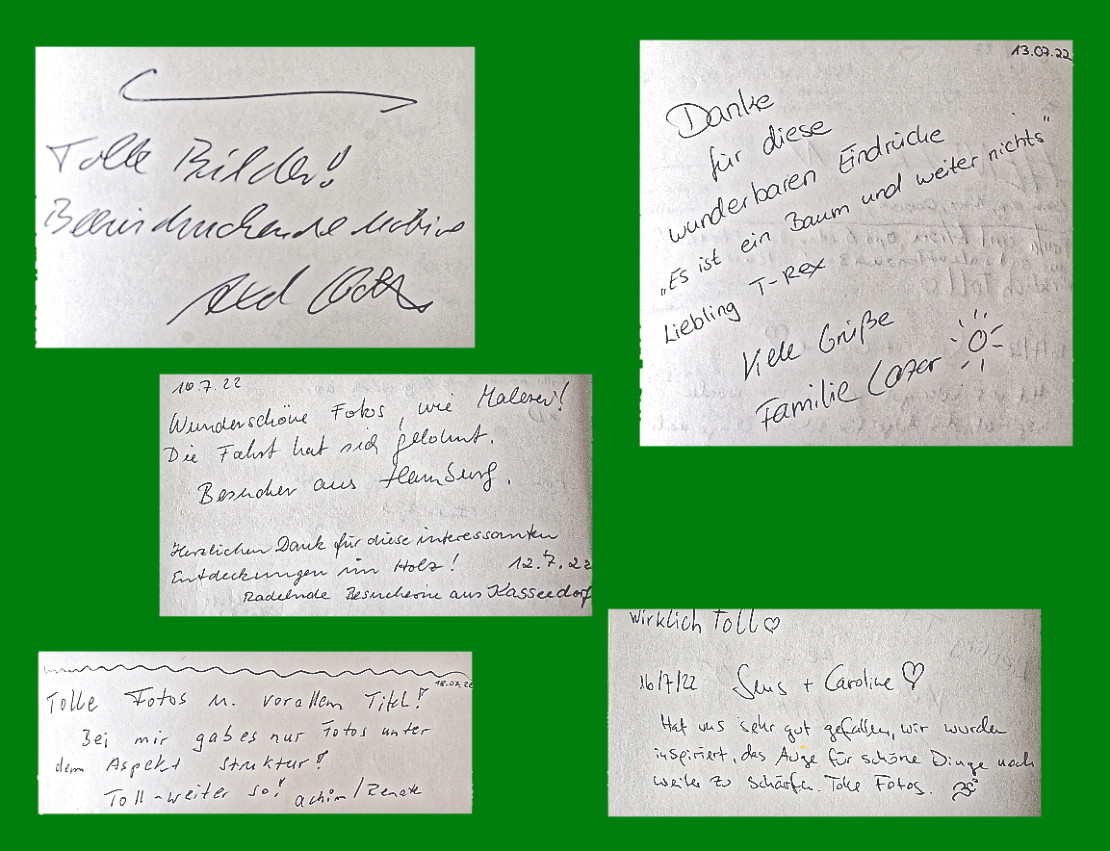 Tolle Bilder!
Beeindruckende Motive
Axel
13.07.22
Danke
für diese
wunderbaren Eindrücke
„Es ist ein Baum und weiter nichts"
Liebling T-Rex
Viele Grüße
Familie
10.7.22
Wunderschöne Fotos, wie Malerei!
Die Fahrt hat sich gelohnt.
Besucher aus Hamburg.
Herzlichen Dank für diese interessanten
Entdeckungen im Holz! 12.7.22
Radelnde Besucherin aus Kasseedorf
wirklich Toll♡
16/7/22 + Caroline ♡
Hat uns sehr gut gefallen, wir wurden
inspiriert, das Auge für schöne Dinge noch
weiter zu schärfen. Tolle Fotos.
18.07.22
Tolle Fotos u. vorallem Titel!
Bei mir gab es nur Fotos unter
dem Aspekt Struktur!
Toll - weiter so! Achim / Renate